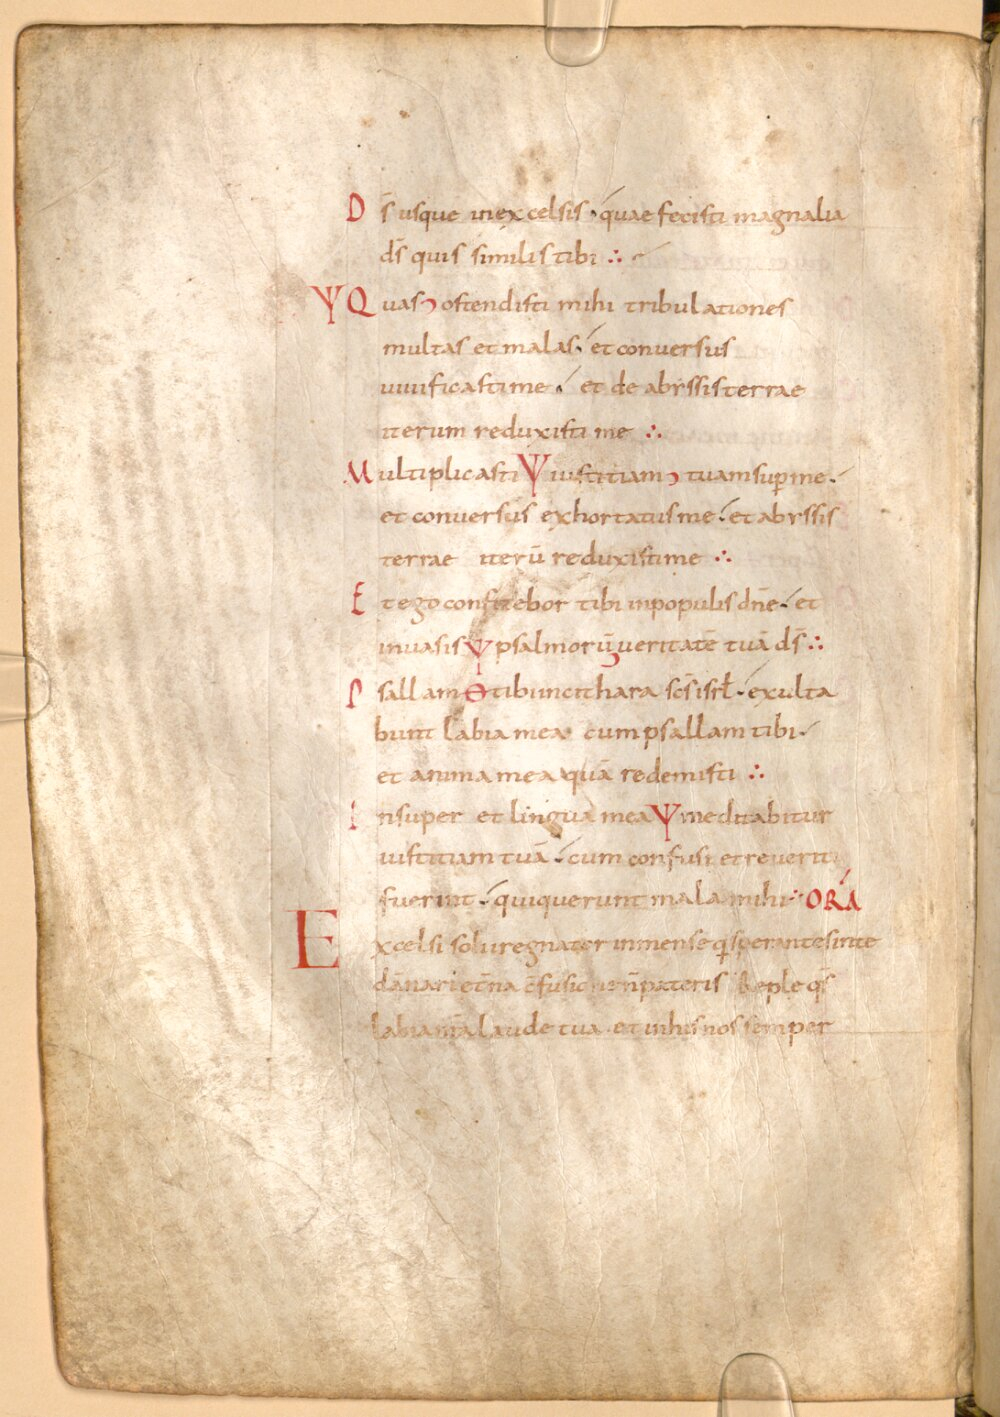 Ds̄ usque in excelsis · quae fecisti magnalia
ds̄ quis similis tibi ∴
Ψ Quas ostendisti mihi tribulationes
multas et malas · et conversus
vivificasti me · et de abyssis terrae
iterum reduxisti me ∴
Multiplicasti Ψ iustitiam tuam sup me ·
et conversus exhortatus me · et abyssis
terrae iterū reduxisti me ∴
Et ego confitebor tibi in populis dn̄e · et
in vasis Ψ psalmorū veritatē tuā ds̄ ∴
Psallam tibi in cithara scs̄ isrl̄ · exulta
bunt labia mea cum psallam tibi ·
et anima mea quā redemisti ∴
Insuper et lingua mea Ψ meditabitur
iustitiam tuā · cum confusi et reveriti
fuerint · qui querunt mala mihi ∴ ORA
Excelsi soli regnator inmense sperantes in te
Reple qs̄
labia nr̄a laude tua · et in his nos semper